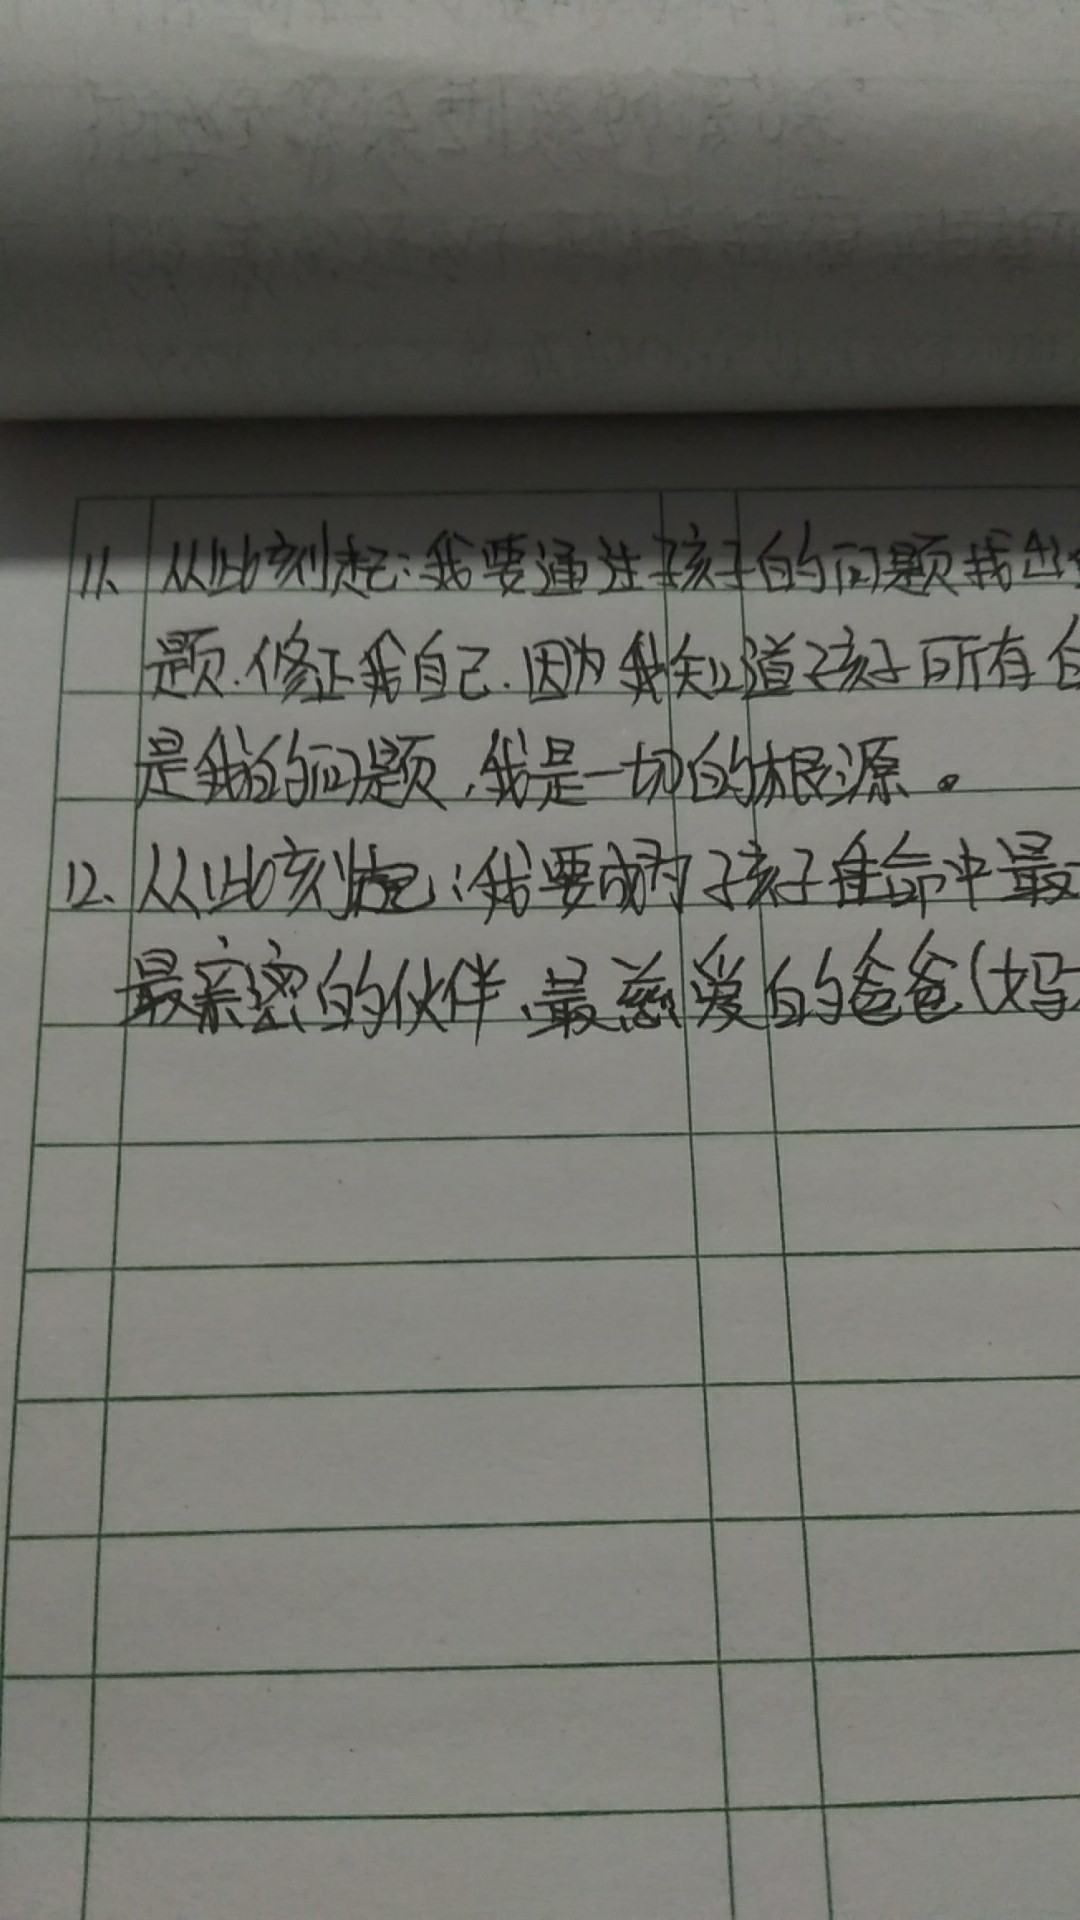 11、从此刻起:我要通过孩子的问题找出
题.修正我自己.因为我知道孩子所有
是我的问题,我是一切的根源。
12、从此刻起:我要成为孩子生命中最
最亲密的伙伴、最慈爱的爸爸(妈